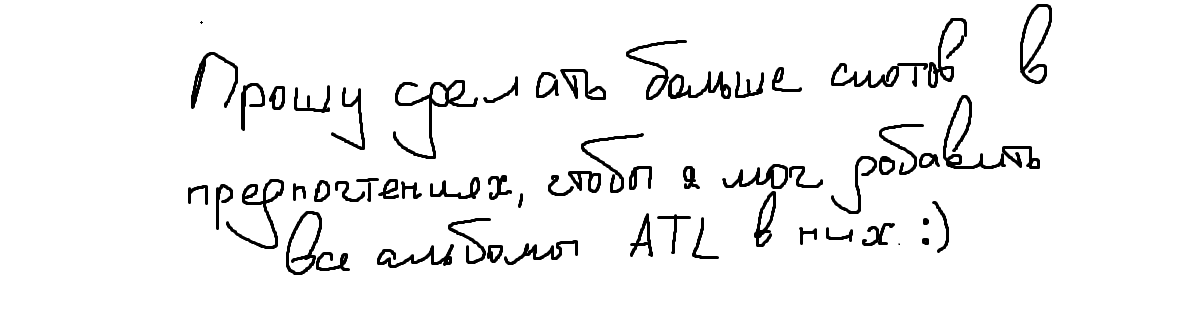 Прошу сделать больше слотов в
предпочтениях, чтобы я мог добавить
все альбомы ATL в них :)